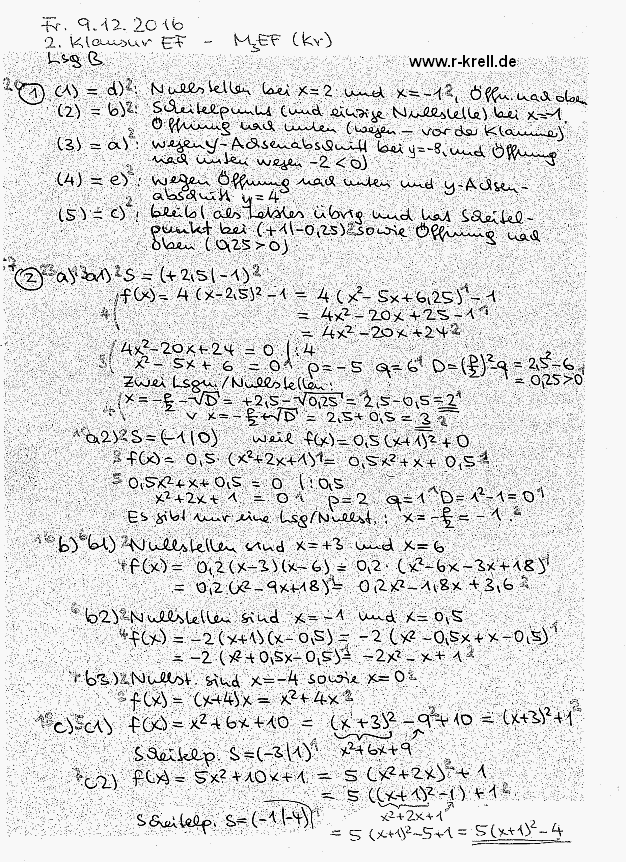 Fr. 9.12.2016
2. Klausur EF - M₃EF (Kr)
www.r-krell.de
Lsg B
① (1) = d)²: Nullstellen bei x=2 und x=-1², Öffn. nach oben
(2) = b)²: Scheitelpunkt (und einzige Nullstelle) bei x=-1,
Öffnung nach unten (wegen - vor der Klammer)
(3) = a)²: wegen y-Achsenabschnitt bei y=-8, und Öffnung
nach unten wegen -2<0)
(4) = e)²: wegen Öffnung nach unten und y-Achsen-
abschnitt y=4
(5) = c)²: bleibt als letztes übrig und hat Scheitel-
punkt bei (+1|-0,25)² sowie Öffnung nach
oben (0,25>0)
② a) a1)² S = (+2,5|-1)²
f(x) = 4(x-2,5)²-1 = 4(x²-5x+6,25)¹-1
= 4x²-20x+25-1¹
= 4x²-20x+24²
4x²-20x+24 = 0 |:4
x²-5x+6 = 0¹ p=-5 q=6¹ D=(p/2)²-q = 2,5²-6
= 0,25>0
Zwei Lsgn/Nullstellen:
x=-p/2-√D = +2,5-√0,25¹ = 2,5-0,5 = 2¹
v x=-p/2+√D = 2,5+0,5 = 3²
a2)² S=(-1|0) weil f(x)=0,5(x+1)²+0
f(x) = 0,5·(x²+2x+1)¹ = 0,5x²+x+0,5¹
0,5x²+x+0,5 = 0 |:0,5
x²+2x+1 = 0¹ p=2 q=1¹ D=1²-1=0¹
Es gibt nur eine Lsg/Nullst.: x=-p/2=-1.²
b) b1)² Nullstellen sind x=+3 und x=6
f(x) = 0,2(x-3)(x-6) = 0,2·(x²-6x-3x+18)¹
= 0,2(x²-9x+18)¹ = 0,2x²-1,8x+3,6²
b2)² Nullstellen sind x=-1 und x=0,5
f(x) = -2(x+1)(x-0,5) = -2(x²-0,5x+x-0,5)¹
= -2(x²+0,5x-0,5)¹ = -2x²-x+1²
b3)² Nullst. sind x=-4 sowie x=0²
f(x) = (x+4)x = x²+4x²
c) c1) f(x) = x²+6x+10 = (x+3)²-9²+10 = (x+3)²+1²
Scheitelp. S=(-3|1)¹ x²+6x+9
c2) f(x) = 5x²+10x+1 = 5(x²+2x)²+1
= 5((x+1)²-1)+1²
x²+2x+1
Scheitelp. S=(-1|-4)¹
= 5(x+1)²-5+1 = 5(x+1)²-4